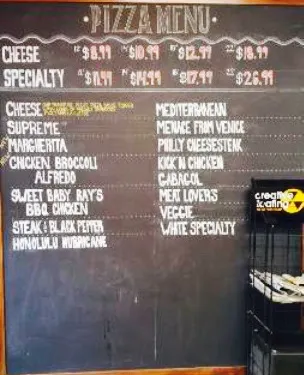 PIZZA MENU
CHEESE 12" $8.99 14" $10.99 16" $12.99 22" $18.99
SPECIALTY $11.99 $14.99 $17.99 $26.99
CHEESE
SUPREME
MARGHERITA
CHICKEN BROCCOLI
ALFREDO
SWEET BABY RAY'S
BBQ CHICKEN
STEAK & BLACK PEPPER
HONOLULU HURRICANE
MEDITERRANEAN
MENACE FROM VENICE
PHILLY CHEESESTEAK
KICK N CHICKEN
GABAGOL
MEAT LOVERS
VEGGIE
WHITE SPECIALTY
creative
loafing